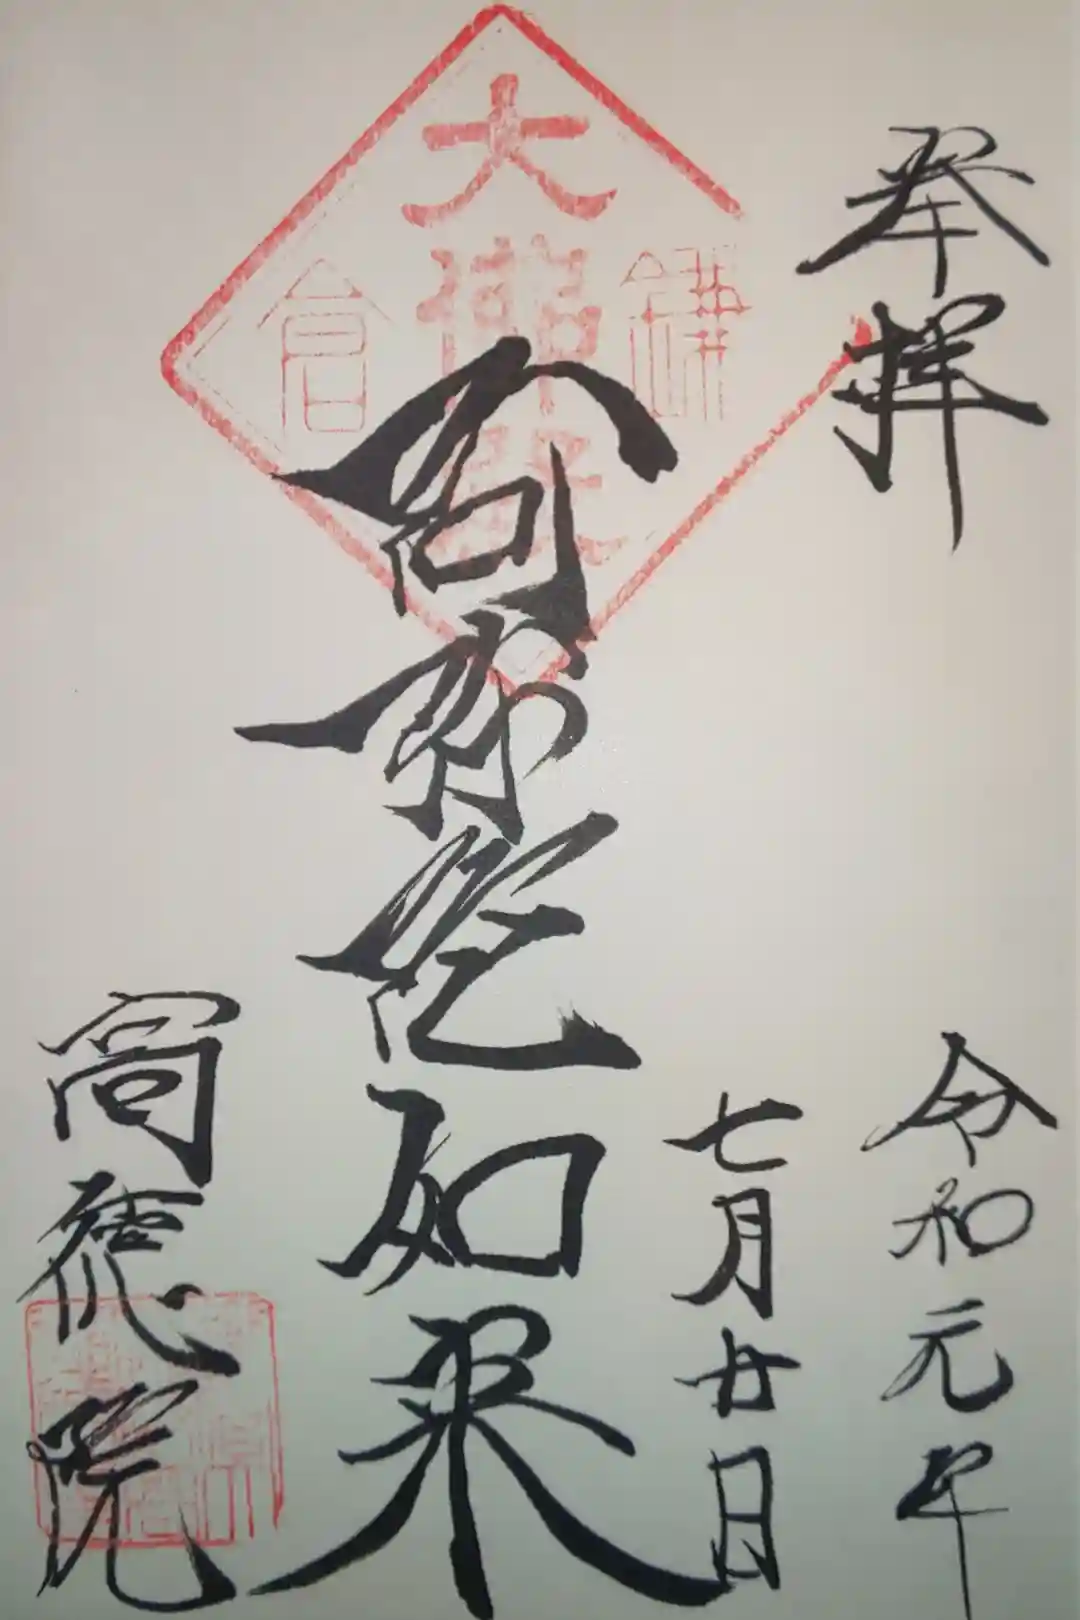 奉拝
令和元年
七月廿日
阿弥陀如来
高徳院
大佛殿
鎌倉